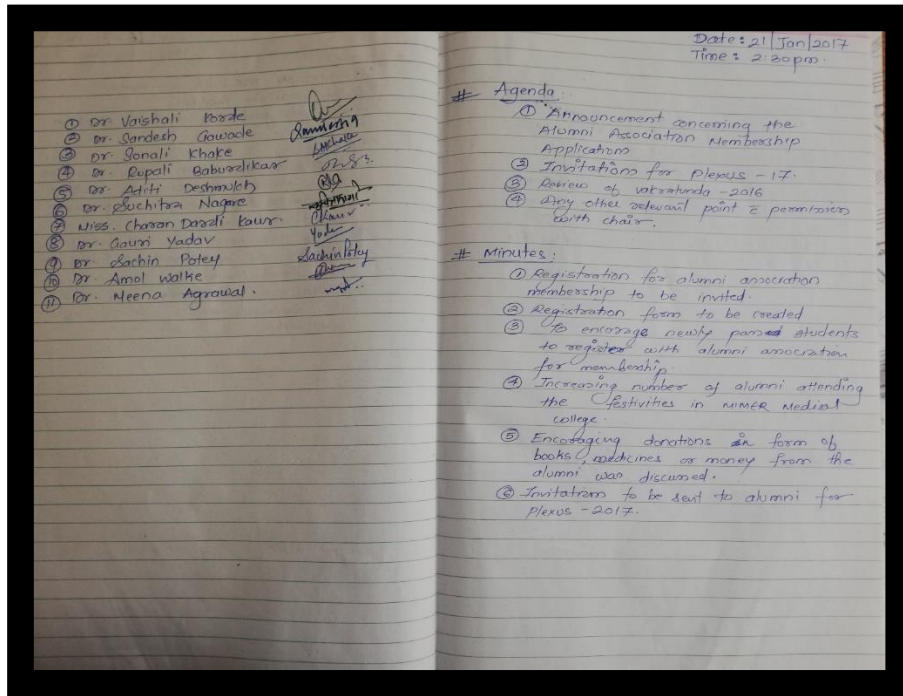 ① Dr. Vaishali Korde
② Dr. Sandesh Gawade
③ Dr. Sonali Khake
④ Dr. Rupali Baburdikar
⑤ Dr. Aditi Deshmukh
⑥ Dr. Suchitra Nagare
⑦ Miss. Charan Dardi Kaur.
⑧ Dr. Gauri Yadav
⑨ Dr. Sachin Potey
⑩ Dr. Amol Walke
⑪ Dr. Meena Agrawal.
Sachin Potey
Date: 21/Jan/2017
Time: 2:30pm.
# Agenda:
① Announcement concerning the
Alumni Association Membership
Applications
② Invitations for Plexus - 17.
③ Review of vakratunda - 2016
④ Any other relevant point c̄ permission
with chair.
# Minutes:
① Registration for alumni association
membership to be invited.
② Registration form to be created
③ To encorage newly passed students
to register with alumni association
for membership.
④ Increasing number of alumni attending
the festivities in MIMER Medical
college.
⑤ Encoraging donations in form of
books, medicines or money from the
alumni was discussed.
⑥ Invitations to be sent to alumni for
Plexus - 2017.